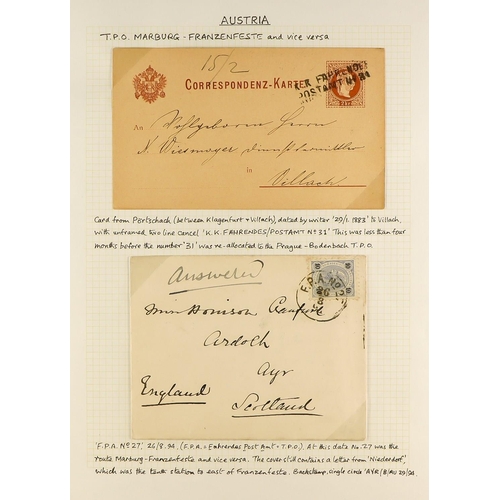 AUSTRIA
T.P.O. MARBURG - FRANZENFESTE and vice versa
15/2
CORRESPONDENZ-KARTE
K.K. FAHRENDES
POSTAMT Nº 31
An Wohlgeboren Herrn
in
Villach
Card from Portschach (between Klagenfurt + Villach), dated by writer '29/1. 1883' to Villach,
with unframed two line cancel 'K.K. FAHRENDES/POSTAMT Nº 31' This was less than four
months before the number '31' was re-allocated to the Prague - Bodenbach T.P.O.
Answered
F.P.A. Nº 27
26
8
Ardoch
Ayr
England
Scotland
'F.P.A. Nº 27,' 26/8.94. (F.P.A. = Fahrendes Post Amt = T.P.O.). At this date No. 27 was the
route Marburg-Franzenfeste and vice versa. The cover still contains a letter from 'Niederdorf,'
which was the tenth station to east of Franzenfeste. Backstamp, single circle 'AYR/B/AU 29/94